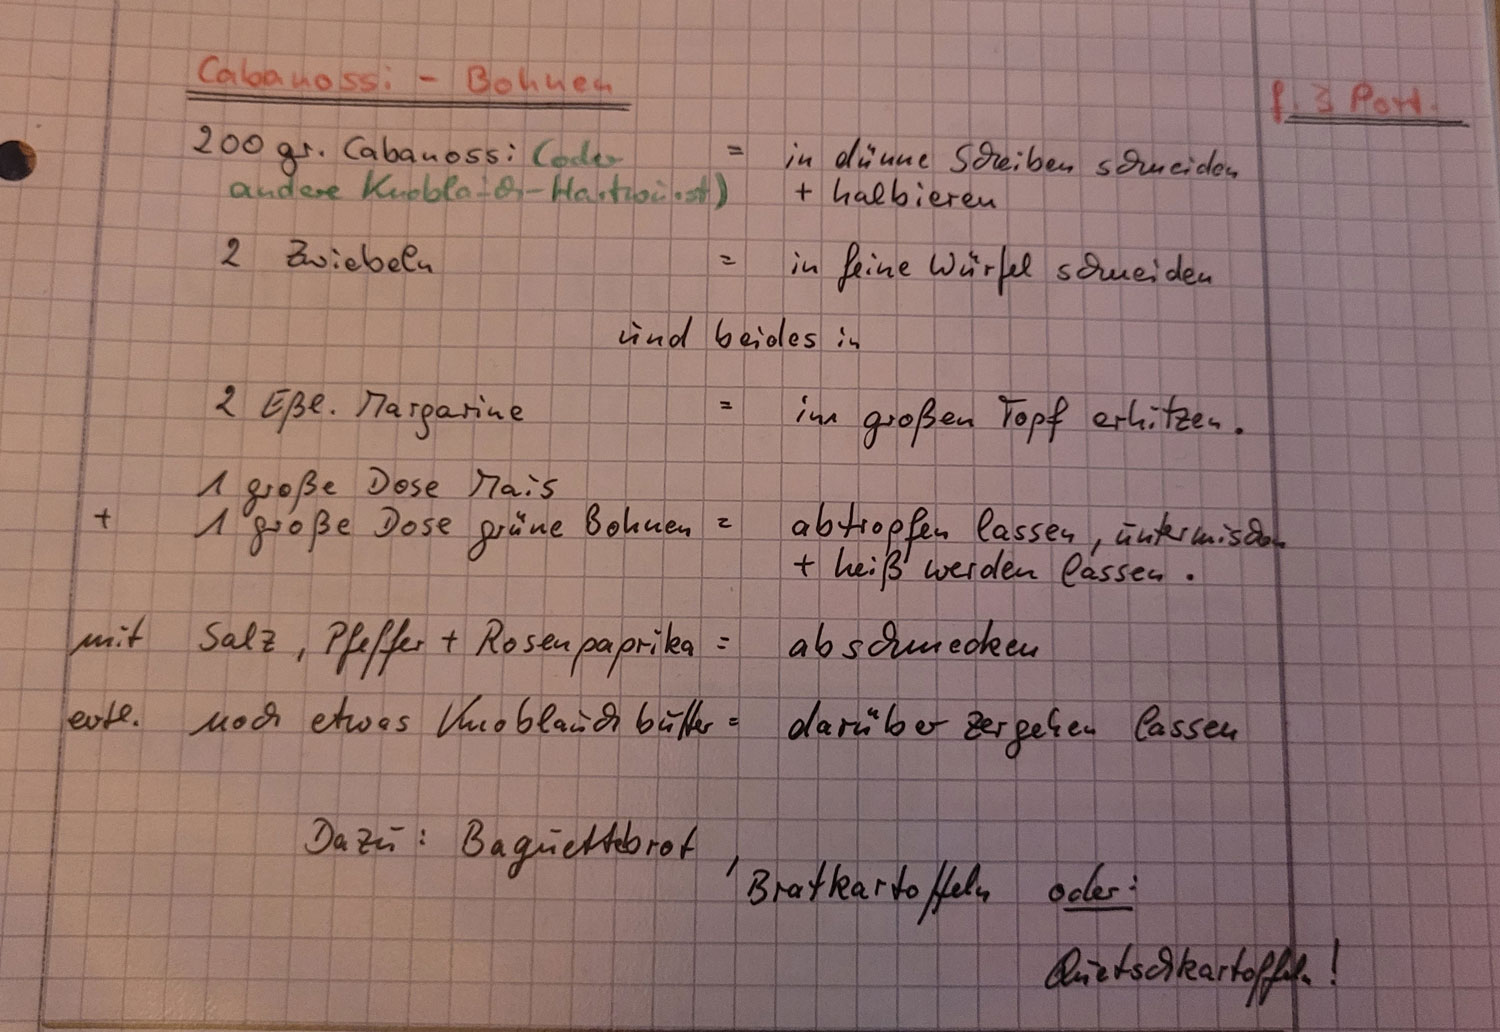 Cabanossi - Bohnen f. 3 Port.
200 gr. Cabanossi (oder = in dünne Scheiben schneiden
andere Knoblauch-Hartwurst) + halbieren
2 Zwiebeln = in feine Würfel schneiden
und beides in
2 Eßl. Margarine = im großen Topf erhitzen.
1 große Dose Mais
+ 1 große Dose grüne Bohnen = abtropfen lassen, untermischen
+ heiß werden lassen.
mit Salz, Pfeffer + Rosenpaprika = abschmecken
evtl. noch etwas Knoblauchbutter = darüber zergehen lassen
Dazu: Baguettebrot,
Bratkartoffeln oder:
Quetschkartoffeln!